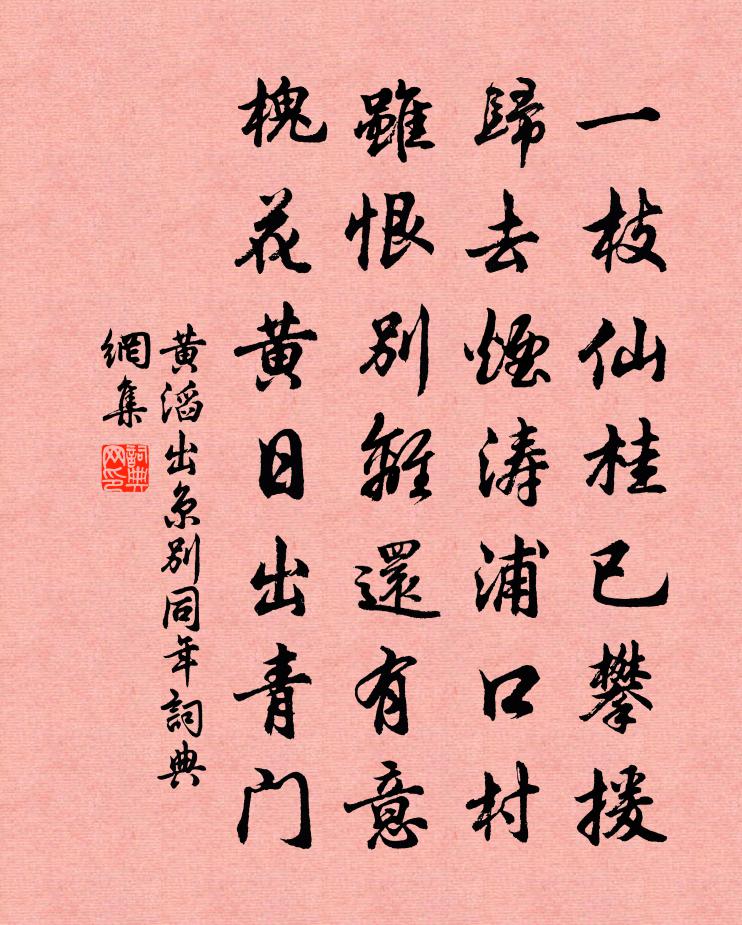 一枝仙桂已攀援
歸去煙濤浦口村
雖恨別離還有意
槐花黄日出青门
黄滔出京別同年詞典
網集
詞典
网印